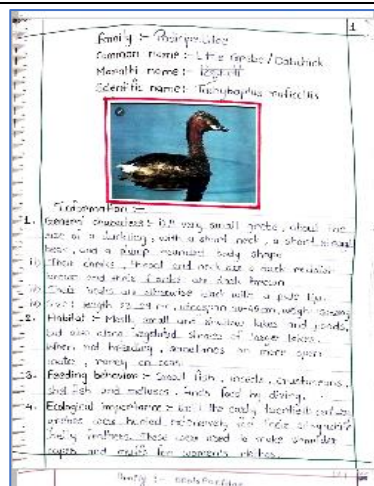 1
Family :-
Common name :- Little Grebe / Dabchick
Marathi name :-
Scientific name : Tachybaptus ruficollis
Information :-
1. General characters :- is a very small grebe, about the
size of a duckling, with a short neck, a short straight
beak, and a plump rounded body shape
i) Their cheeks, throat and neck are a reddish
brown and their flanks are dark brown
ii) Their beaks are otherwise black with a pale
iii) Size : length cm, wingspan cm, weight
2. Habitat :- Mostly small and shallow lakes and ponds,
but also along vegetated shores of larger lakes.
When not breeding, sometimes on more open
water, rarely on sea.
3. Feeding behaviour :- Small fish, insects, crustaceans,
shell fish and molluscs. Finds food by diving.
4. Ecological importance :- Until the early twentieth century
grebes was hunted extensively for their
belly feathers. These were used to make shoulder
capes and muffs for women's clothes.
Family :-